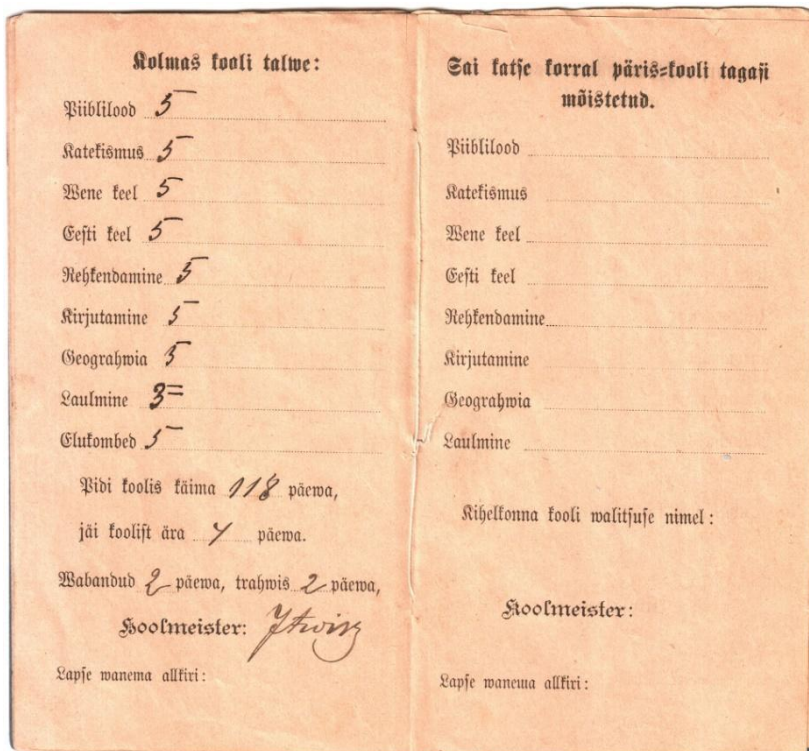 Kolmas kooli talwe:
Piiblilood 5
Katekismus 5
Wene keel 5
Eesti keel 5
Rehkendamine 5
Kirjutamine 5
Geograhwia 5
Laulmine 3=
Elukombed 5
Pidi koolis käima 118 päewa,
jäi koolist ära 4 päewa.
Wabandud 2 päewa, trahwis 2 päewa,
Koolmeister:
Lapse wanema allkiri:
Sai katse korral päris-kooli tagasi
mõistetud.
Piiblilood
Katekismus
Wene keel
Eesti keel
Rehkendamine
Kirjutamine
Geograhwia
Laulmine
Kihelkonna kooli walitsuse nimel:
Koolmeister:
Lapse wanema allkiri: